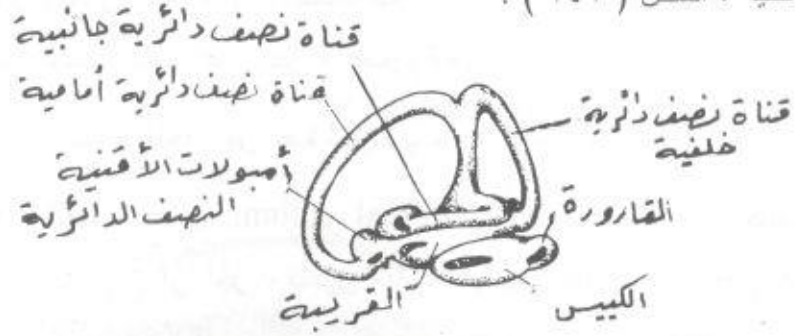 قناة نصف دائرية جانبية
قناة نصف دائرية أمامية
قناة نصف دائرية
خلفية
أمبولات الأقنية
النصف الدائرية
القارورة
القريبة
الكييس